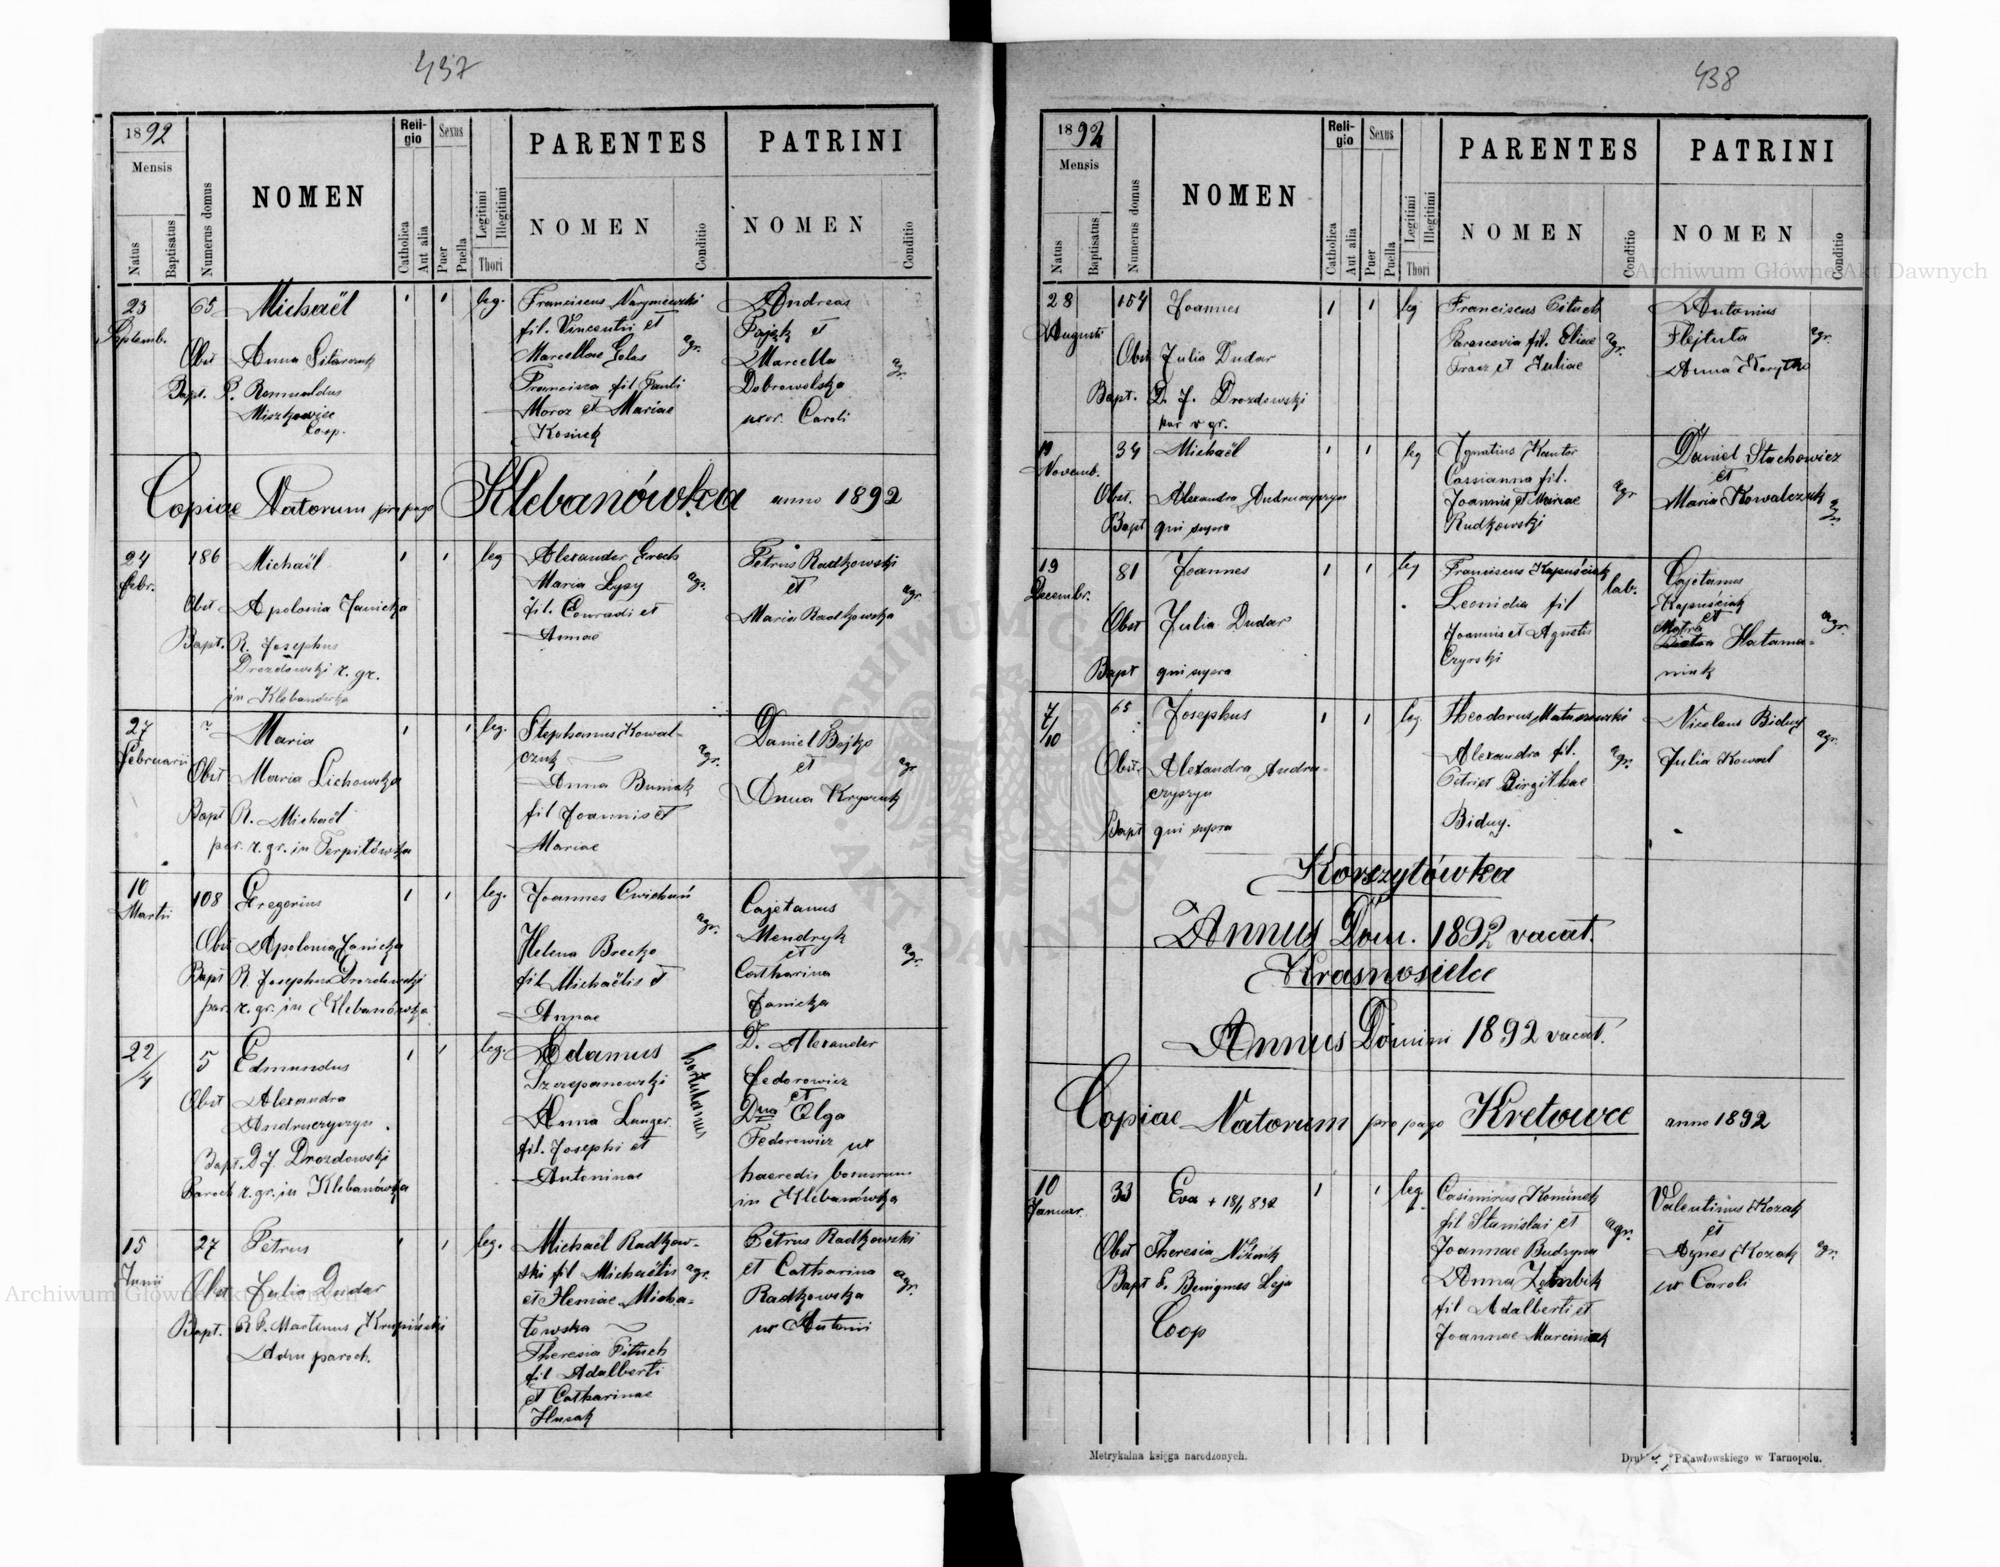 437
1892
Mensis
Natus
Baptisatus
Numerus domus
NOMEN
Religio
Catholica
Aut alia
Sexus
Puer
Puella
Legitimi
Illegitimi
Thori
PARENTES
NOMEN
Conditio
PATRINI
NOMEN
Conditio
23 65 Michaël 1 1 leg. Franciscus Andreas
Septemb. fil. Vincentii et et
Obst Anna Marcellae agr. Marcella agr.
Bapt. P. Romualdus Francisca fil Pauli Dobrowolska
Moroz et Mariae uxor Caroli
Coop.
Copiae Natorum pro pago Klebanówka anno 1892
24 186 Michaël 1 1 leg Alexander Petrus Radkowski
Febr. Maria Łysy agr. et agr
Obst Apolonia Janicka fil. Conradi et Maria Radkowska
Bapt. R. Josephus Annae
Drozdowski r. gr.
in Klebanówka
27 ? Maria 1 1 leg. Stephanus Kowal- Daniel Bojko
Februarii czuk agr. et agr
Obst Maria Lichowska Anna Buniak Anna
Bapt R. Michaël fil Joannis et
par. r. gr. in Terpiłówka Mariae
10 108 Gregorius 1 1 leg. Joannes Cajetanus
Martii agr. Mendryk
Obst Apolonia Janicka Helena et agr.
Bapt R. Josephus Drozdowski fil Michaëlis et Catharina
par. r. gr. in Klebanówka Annae Janicka
22/4 5 Edmundus 1 1 leg. Adamus hortulanus D. Alexander
Szczepanowski Fedorowicz
Obst Alexandra et
Andruczyszyn. Anna Langer Dna Olga
Bapt. D J. Drozdowski fil. Josephi et Fedorowicz ux
Paroch r. gr. in Klebanówka Antoninae haeredis bonorum
in Klebanówka
15 27 Petrus 1 1 leg. Michaël Radkow- Petrus Radkowski
Junii ski fil Michaëlis agr. et Catharina agr.
Obst Julia Dudar et Radkowska
Bapt. R P. Martinus Krupiński towska ux Antoni
Adm paroch. Theresia Pituch
fil Adalberti
et Catharinae
Husak
438
1892
Mensis
Natus
Baptisatus
Numerus domus
NOMEN
Religio
Catholica
Aut alia
Sexus
Puer
Puella
Legitimi
Illegitimi
Thori
PARENTES
NOMEN
Conditio
PATRINI
NOMEN
Conditio
28 154 Joannes 1 1 leg Franciscus Pituch Antonius
Augusti Parascevia fil. Eliae agr. Flejtuta agr.
Obst Julia Dudar et Juliae Anna
Bapt. D. J. Drozdowski
par r gr.
19 34 Michaël 1 1 leg Ignatius Kantor Daniel Stachowicz
Novemb. Cassianna fil. et
Obst. Alexandra Andruczyszyn Joannis et Mariae agr Maria Kowalczuk agr
Bapt qui supra Rudkowski
19 81 Joannes 1 1 leg Franciscus Kapuściak lab. Cajetanus
Decembr. Leonidia fil Kapuściak
Obst Julia Dudar Joannis et Agnetis et agr.
Bapt qui supra Czyrski Hatama-
niuk
7/10 65 Josephus 1 1 leg. Theodorus Matuszewski Nicolaus Biduy
Obst. Alexandra Andru- Alexandra fil. agr. Julia Kowal agr.
czyszyn Petri et Birgithae
Bapt qui supra Biduy.
Korszyłówka
Annus Dom. 1892 vacat.
Krasnosielce
Annus Domini 1892 vacat.
Copiae Natorum pro pago Kretowce anno 1892
10 33 Eva + 18/1 892 1 1 leg. Casimirus Kominek Valentinus Kozak
Januar. fil Stanislai et agr. et
Obst Theresia Joannae Budzyna Agnes Kozak agr.
Bapt P. Benignus Leja Anna ux Caroli
Coop fil Adalberti et
Joannae Marciniak
Metrykalna księga narodzonych.
Pawłowskiego w Tarnopolu.
Archiwum Główne Akt Dawnych
Archiwum Główne Akt Dawnych
ARCHIWUM GŁÓWNE AKT DAWNYCH